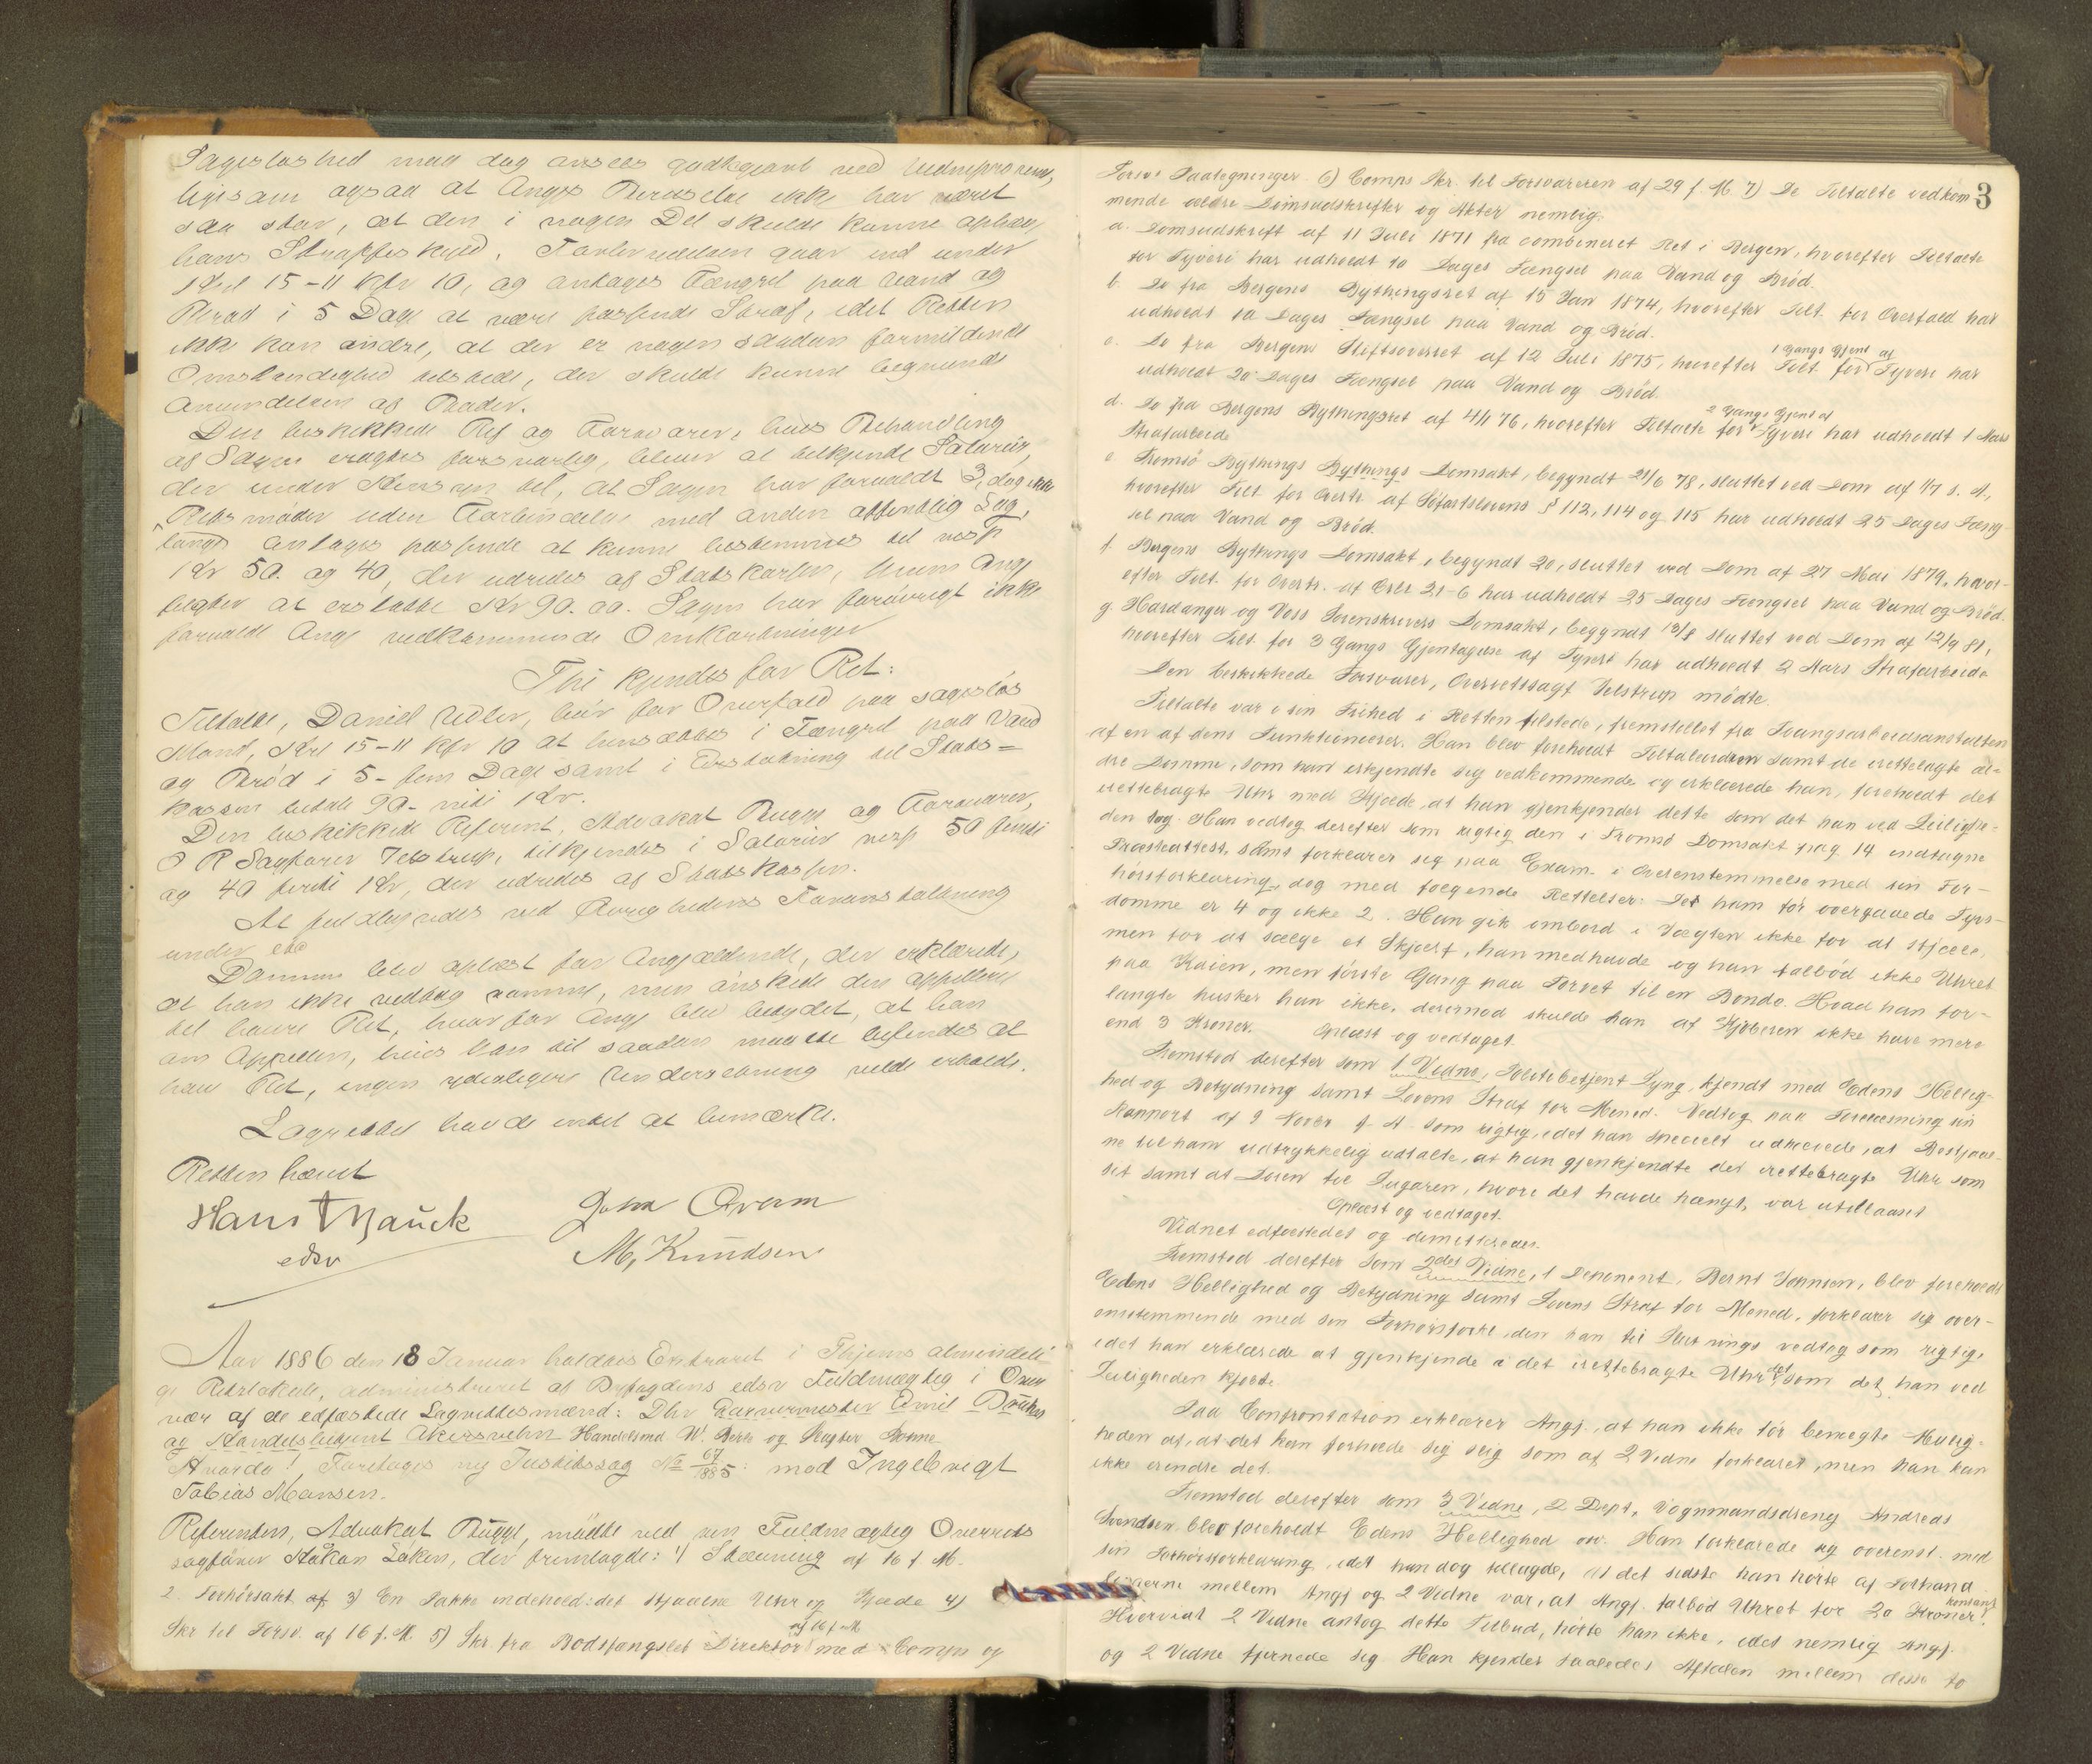 Sagesløshed maa dog ansees godtgjort ved Vidneprovene,
ligesom ogsaa at Angjs Beruselse ikke har været
saa stor, at den i nogen Del skulde kunne ophæve
hans Strafskyld. Forbrydelsen gaar ind under
Krl 15-11 kfr 10, og antages Fængsel paa Vand og
Brød i 5 Dage at være passende Straf, idet Retten
ikke kan andre, at der er nogen saadan formildende
Omstændighed tilstede, der skulde kunne begrunde
Anvendelsen af Bøder.
Den beskikkede Ref og Forsvarer, hvis Behandling
af Sagen eragtes forsvarlig, bliver at tilkjende Salarier,
der under Hensyn til, at Sagen har forvoldt 3, dog ikke
lange Retsmøder uden Forbindelse med anden offentlig Sag,
antages passende at kunne bestemmes til resp
Kr 50. og 40, der udredes af Statskassen, hvem Angj
pligter at erstatte Kr 90.00. Sagen har forøvrigt ikke
forvoldt Angj vedkommende Omkostninger
Thi kjendes for Ret:
Tiltalte, Daniel, bør for Overfald paa sagesløs
Mand, Krl 15-11 kfr 10 at hensættes i Fængsel paa Vand
og Brød i 5- fem Dage samt i Erstatning til Stats=
kassen betale 90- niti Kr.
Den beskikkede Referent, Advokat Bugge og Forsvarer,
O R Sagfører Jelstrup, tilkjendes i Salarier resp 50 femti
og 40 førti Kr, der udredes af Statskassen.
At fuldbyrdes ved Øvrighedens Foranstaltning
under
Dommen blev oplæst for Angjældende, der erklærede,
at han ikke vedtog samme, men ønskede den appelleret
til høiere Ret, hvorfor Angj blev betydet, at han
om Appellen, hvis han til saadan maatte befindes at
have Ret, ingen yderligere Underretning vilde erholde.
Lagrettet havde intet at bemærke.
Retten hævet
Hans Mauck
edsv
John
M, Knudsen
Aar 1886 den 18 Januar holdtes Extraret i Thjems almindeli
ge Retslokale, administreret af Byfogdens edsv Fuldmægtig i Over
vær af de edfæstede Lagrettesmænd: Dhr Garvermester Emil
og Handelsbetjent Akersvehn Handelsmd W. og
Hvorda! Foretoges ny Justitssag № 67/1885: mod Ingebregt
Tobias Monsen.
Referenten, Advokat Bugge, mødte ved sin Fuldmægtig Overrets
sagfører Haakon Løken, der fremlagde: 1) Stævning af 16 f M.
2 Forhørsakt af 3) En Pakke indehold: det stjaalne Uhr og Kjæde 4)
Skr til Forsv. af 16 f. M. 5) Skr. fra Bodsfængslet Direktør af 16 f M med Comps og
3
Forsvs Paategninger. 6) Comps Skr. til Forsvareren af 29 f. M 7) De Tiltalte vedkom
mende ældre Domsudskrifter og Akter nemlig.
a. Domsudskrift af 11 Juli 1871 fra combineret Ret i Bergen, hvorefter Tiltalte
for Tyveri har udholdt 10 Dages Fængsel paa Vand og Brød.
b. Do fra Bergens Bythingsret af 15 Jan 1874, hvorefter Tilt. for Overfald har
udholdt 10 Dages Fængsel paa Vand og Brød.
c. Do fra Bergens Stiftsoverret af 12 Juli 1875, hvorefter Tilt. for 1 Gangs Gjent af Tyveri har
udholdt 20 Dages Fængsel paa Vand og Brød.
d. Do fra Bergens Bythingsret af 4/1 76, hvorefter Tiltalte for 2 Gangs Gjent af Tyveri har udholdt 1 Aars
Strafarbeide
e. Tromsø Bythings Bythings Domsakt, begyndt 21/6 78, sluttet ved Dom af 1/7 s. A,
hvorefter Tilt for Overtr. af Søfartslovens § 112, 114 og 115 har udholdt 25 Dages Fæng-
sel paa Vand og Brød.
f. Bergens Bythings Domsakt, begyndt 20, sluttet ved Dom af 27 Mai 1879, hvor-
efter Tilt. for Overtr. af Crlr 21-6 har udholdt 25 Dages Fængsel paa Vand og Brød.
g. Hardanger og Voss Sorenskrivers Domsakt, begyndt 13/8 sluttet ved Dom af 12/9 81,
hvorefter Tilt. for 3 Gangs Gjentagelse af Tyveri har udholdt 2 Aars Strafarbeide
Den beskikkede Forsvarer, Overretssagf Jelstrup mødte.
Tiltalte var i sin Frihed i Retten tilstede, fremstillet fra Tvangsarbeidsanstalten
af en af dens Funktionærer. Han blev foreholdt Tiltaleordren samt de irettelagte æl=
dre Domme, som han erkjendte sig vedkommende og erklærede han, foreholdt det
irettebragte Uhr med Kjæde, at han gjenkjender dette som det han ved Leilighe-
den tog. Han vedtog derefter som rigtig den i Tromsø Domsakt pag 14 indtagne
Præsteattest, samt forklarer sig paa Exam. i Overensstemmelse med sin For-
hørsforklaring, dog med følgende Rettelser: De ham før overgaaede Tyvs-
domme er 4 og ikke 2. Han gik ombord i Vægten ikke for at stjæle,
men for at sælge et Skjærf, han medhavde og han falbød ikke Uhret
paa Kaien, men første Gang paa Torvet til en Bonde. Hvad han for-
langte husker han ikke, derimod skulde han af Kjøberen ikke have mere
end 3 Kroner. Oplæst og vedtaget.
Fremstod derefter som 1 Vidne, Politibetjent Lyng, kjendt med Edens Hellig-
hed og Betydning samt Lovens Straf for Mened. Vedtog paa Forelæsning sin
Rapport af 9 Novbr f A. som rigtig, idet han specielt udhævede, at Bestjaal-
ne til ham udtrykkelig udtalte, at han gjenkjendte det irettebragte Uhr som
sit samt at Døren til Lugaren, hvori det havde hængt, var utillaaset
Oplæst og vedtaget.
Vidnet edfæstedes og dimitteredes.
Fremstod derefter som 2det Vidne, 1 Deponent, Bernt Johnsen, blev foreholdt
Edens Hellighed og Betydning samt Lovens Straf for Mened, forklarer sig over-
ensstemmende med sin Forhørsforkl, den han til Slutning vedtog som rigtig,
idet han erklærede at gjenkjende i det irettebragte Uhr det, som det, han ved
Leiligheden kjøbte
Paa Confrontation erklærer Angj., at han ikke tør benegte Mulig-
heden af, at det kan forholde sig slig som af 2 Vidne forklaret, men han kan
ikke erindre det.
Fremstod derefter som 3 Vidne, 2 Dept, Vognmandsdreng Andreas
Svendsen, blev foreholdt Edens Hellighed osv. Han forklarede sig overenst. med
sin Forhørsforklaring, idet han dog tillagde, at det sidste han hørte af Forhand
lingerne mellem Angj og 2 Vidne var, at Angj. falbød Uhret for 20 Kroner kontant.
Hvorvidt 2 Vidne antog dette Tilbud, hørte han ikke, idet nemlig Angj.
og 2 Vidne fjernede sig Han kjender saaledes Aftalen mellem disse to